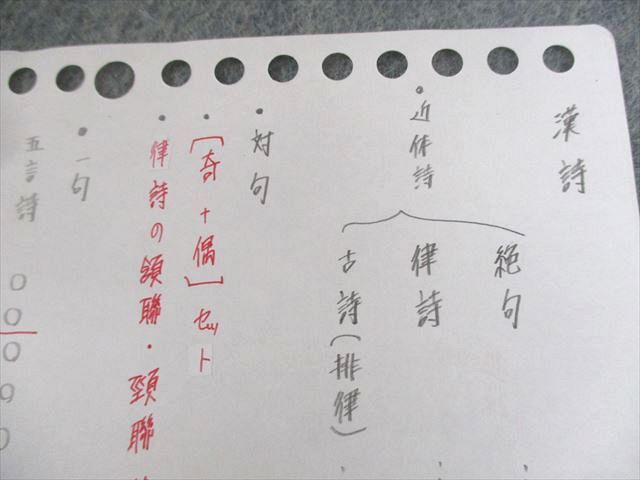 漢詩
絶句
・近体詩
律詩
古詩（排律）
・対句
・〔奇＋偶〕セット
・律詩の頷聯・頸聯
・一句
五言詩